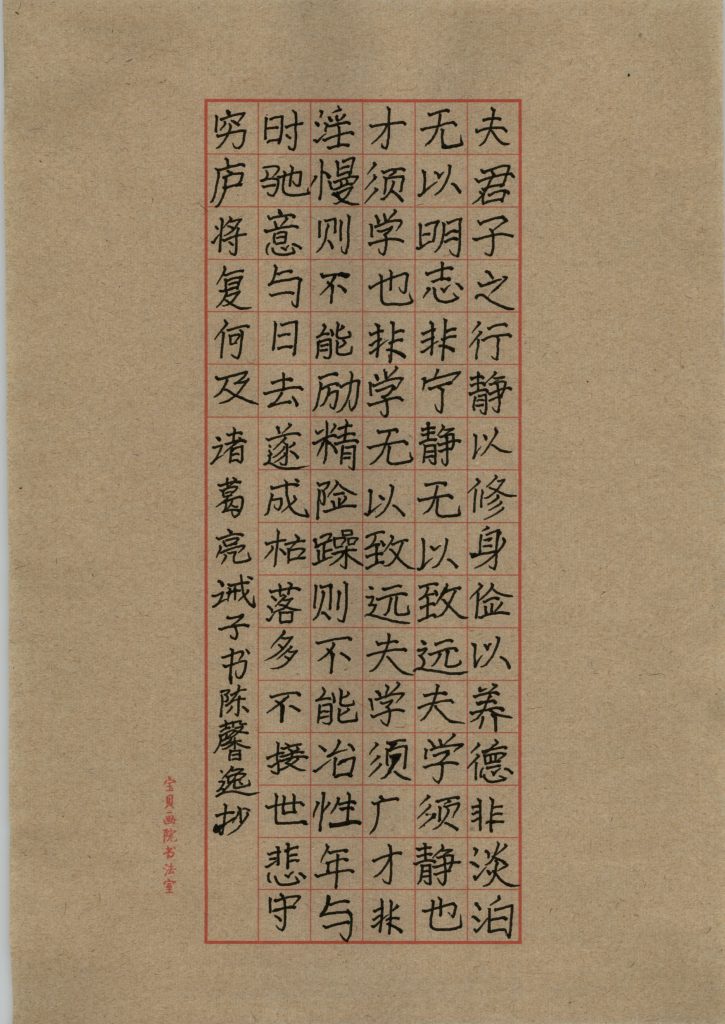 夫君子之行静以修身俭以养德非淡泊
无以明志非宁静无以致远夫学须静也
才须学也非学无以致远夫学须广才非
淫慢则不能励精险躁则不能冶性年与
时驰意与日去遂成枯落多不接世悲守
穷庐将复何及诸葛亮诫子书陈馨逸抄
宝贝画院书法室